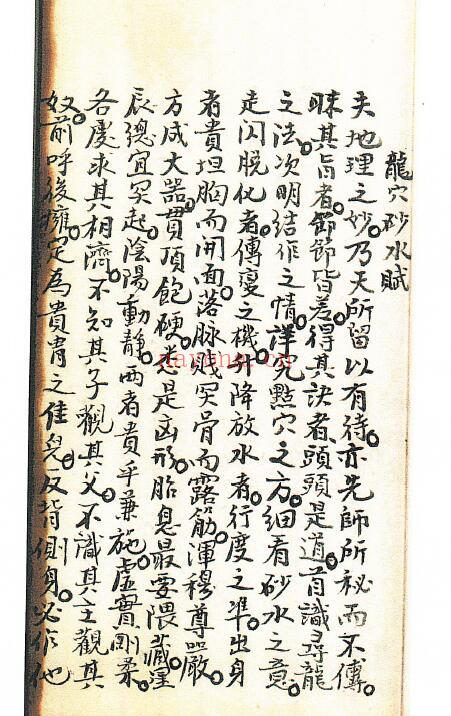 龍穴砂水賦
夫地理之妙。乃天所留以有待。亦先師所秘而不傳。
昧其旨者。節節皆差。得其訣者。頭頭是道。首識尋龍
之法。次明結作之情。詳究點穴之方。細看砂水之意。
走閃脫化者。傳變之機。升降放水者。行度之準。出身
者貴坦胸而開面。落脉賤突骨而露筋。渾穆尊嚴。
方成大器。貫頂飽硬。是凶形。胎息最要隈藏。星
辰總宜突起。陰陽動靜。兩者貴乎兼施。虛實剛柔。
各處求其相濟。不知其子觀其父。不識其主觀其
奴。前呼後擁。定為貴胄之佳兒。反背側身。必作他
nayona.cn